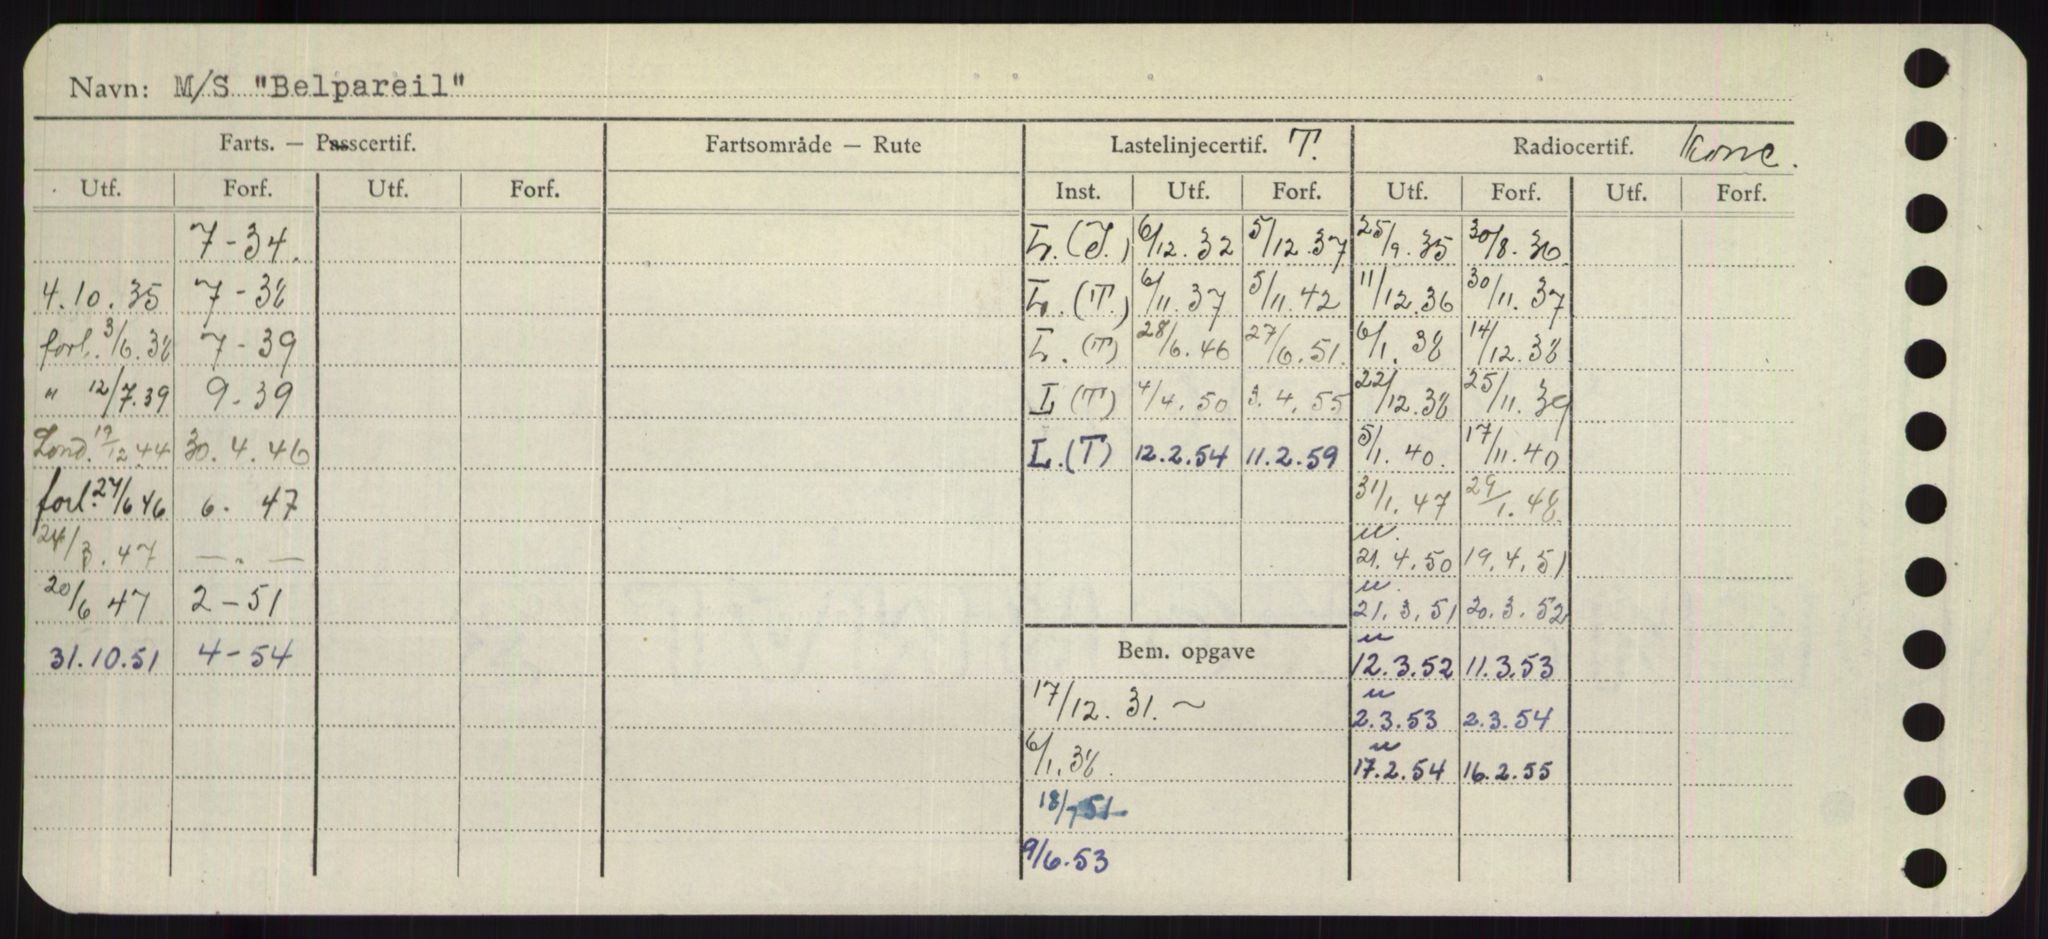 Navn: M/S "Belpareil"
Farts. — Passcertif. Fartsområde — Rute Lastelinjecertif. T. Radiocertif. Konc.
Utf. Forf. Utf. Forf. Inst. Utf. Forf. Utf. Forf. Utf. Forf.
7-34. L.(T.) 6/12.32 5/12.37 25/9.35 30/8.36
4.10.35 7-38 L.(T.) 6/11.37 5/11.42 11/12.36 30/11.37
forl. 3/6.38 7-39 L.(T) 28/6.46 27/6.51. 6/1.38 14/12.38
" 12/7.39 9-39 L(T) 4/4.50 3.4.55 22/12.38 25/11.39
Lond. 19/12 44 30.4.46 L.(T) 12.2.54 11.2.59 5/1.40. 17/11.40
forl. 27/6 46 6. 47 31/1.47 29/1.48
24/3.47 — . — 21.4.50 19.4.51
20/6 47 2-51 21.3.51 20.3.52
31.10.51 4-54 Bem. opgave 12.3.52 11.3.53
17/12.31. ~ 2.3.53 2.3.54
6/1.38. 17.2.54 16.2.55
18/7 51
9/6.53